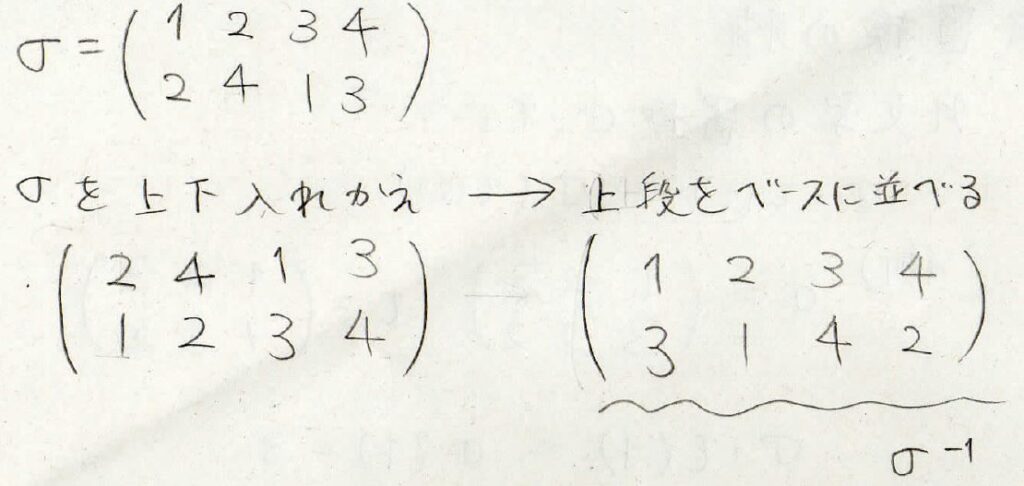 σ = ( 1 2 3 4
2 4 1 3 )
σを上下入れかえ → 上段をベースに並べる
( 2 4 1 3
1 2 3 4 )
( 1 2 3 4
3 1 4 2 )
σ⁻¹